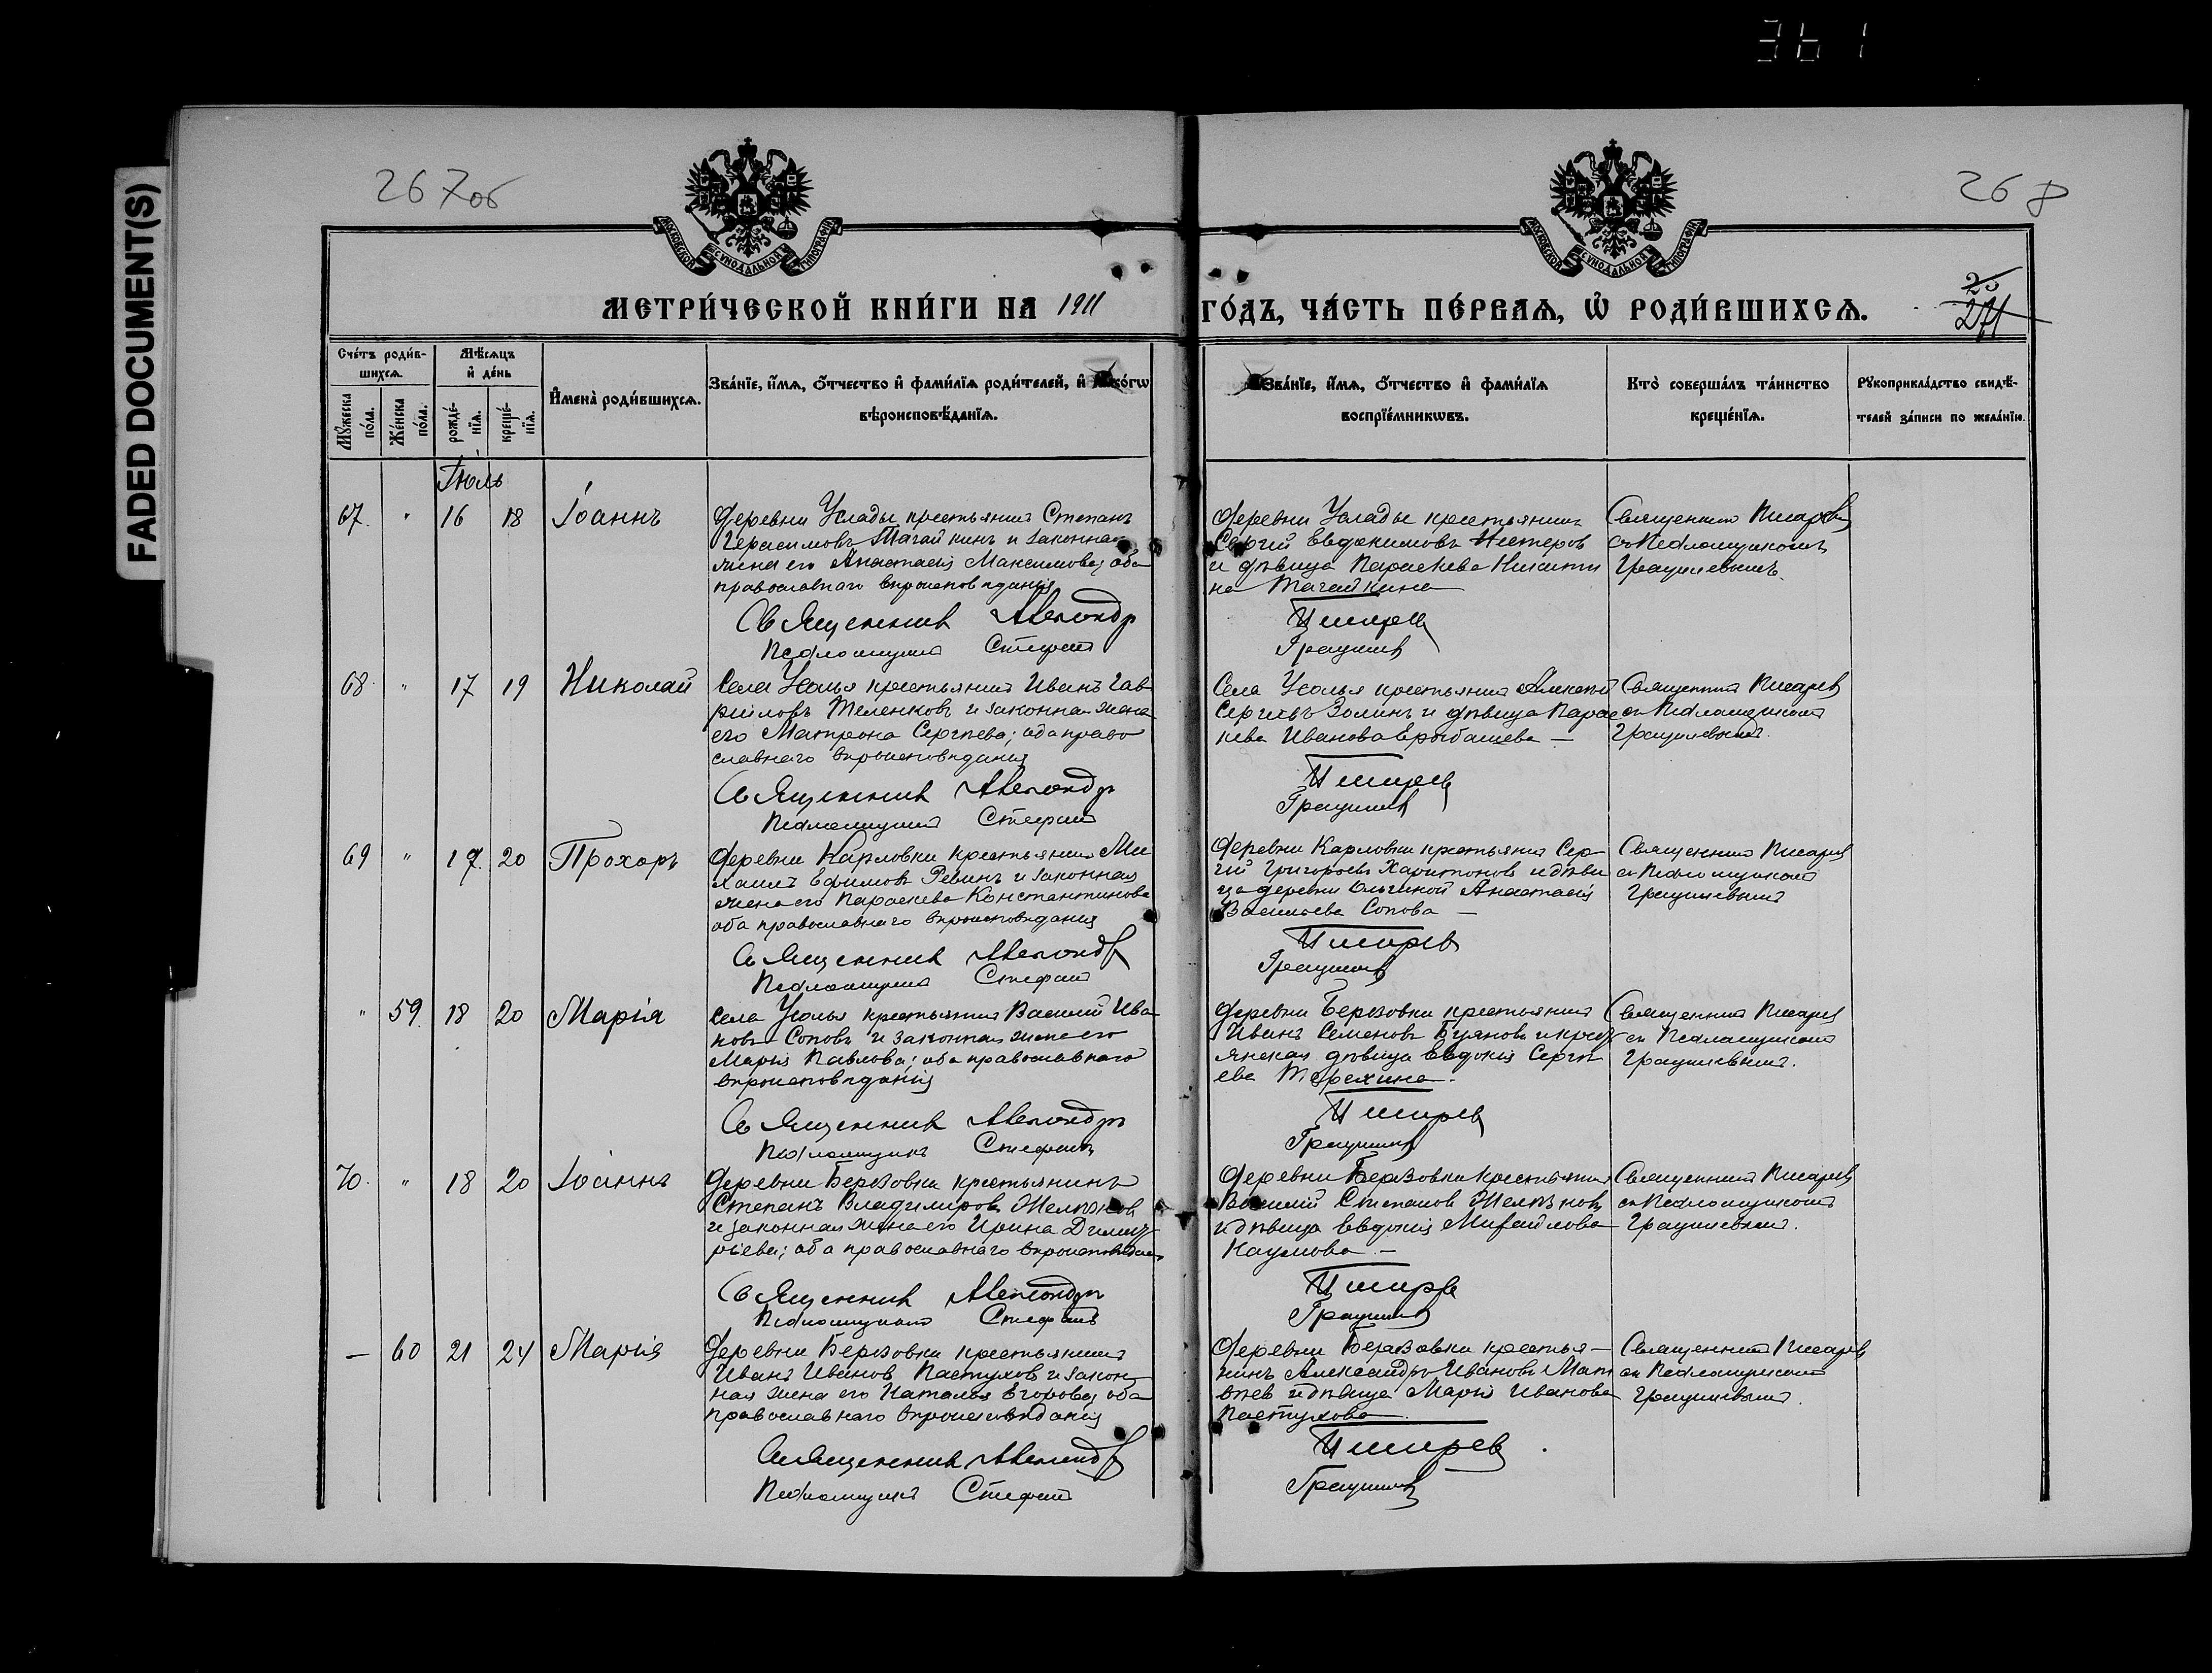 361
FADED DOCUMENT(S)
267об
268
МОСКОВСКОЙ СѴНОДАЛЬНОЙ ТИПОГРАФІИ
МОСКОВСКОЙ СѴНОДАЛЬНОЙ ТИПОГРАФІИ
МЕТРИ́ЧЕСКОЙ КНИ́ГИ НА 1911
ГО́ДЪ, ЧА́СТЬ ПЕ́РВАѦ, Ѡ҆ РОДИ́ВШИХСѦ.
271
Сче́тъ роди́в-
шихсѧ.
Мѣ́сѧцъ
и҆ де́нь
Мꙋ́жеска
по́ла.
Же́нска
по́ла.
рожде́-
нїѧ.
креще́-
нїѧ.
И҆мена̀ роди́вшихсѧ.
Зва́нїе, и҆́мѧ, ѻ҆́тчество и҆ фами́лїѧ роди́телей, и҆ како́гѡ
вѣроисповѣ́данїѧ.
Зва́нїе, и҆́мѧ, ѻ҆́тчество и҆ фами́лїѧ
воспрїе́мникѡвъ.
Кто̀ соверша́лъ та́инство
креще́нїѧ.
Рꙋкоприкла́дство свидѣ́-
телей за́писи по жела́нїю.
Іюль
67. " 16 18 Іоаннъ
Деревни Услады крестьянинъ Степанъ
Герасимовъ Тагайкинъ и законная
жена его Анастасія Максимова; оба
православнаго вѣроисповѣданія
Священник Александр
Псаломщикъ Стефанъ
Деревни Услады крестьянинъ
Сергій Евдокимовъ Нестеров
и дѣвица Параскева Никити
на Тагайкина
Писарев
Граушев
Священникъ Писаревъ
съ Псаломщикомъ
Граушевымъ.
68. " 17 19 Николай
Села Усолья крестьянинъ Иванъ Гав
риловъ Теленковъ и законная жена
его Матрона Сергѣева; оба право
славнаго вѣроисповѣданія
Священник Александръ
Псаломщикъ Стефанъ
Села Усолья крестьянинъ Алексѣй
Сергѣевъ Золинъ и дѣвица Парас
кева Иванова —
Писарев
Граушев
Священникъ Писаревъ
съ Псаломщикомъ
Граушевымъ.
69 " 17. 20 Прохоръ
Деревни Карловки крестьянинъ Ми
хаилъ Ефимовъ Ревинъ и законная
жена его Параскева Константинова
оба православнаго вѣроисповѣданія
Священник Александр
Псаломщикъ Стефанъ
Деревни Карловки крестьянинъ Сер
гій Григорьевъ Харитоновъ и дѣви
ца деревни Ольгиной Анастасія
Васильева Сопова —
Писарев
Граушев
Священникъ Писаревъ
съ Псаломщикомъ
Граушевымъ
" 59. 18 20 Марія
Села Усолья крестьянинъ Василій Ива
новъ Соповъ и законная жена его
Марія Павлова; оба православнаго
вѣроисповѣданія
Священник Александръ
Псаломщикъ Стефанъ
Деревни Березовки крестьянинъ
Иванъ Семеновъ Буяновъ и крест
янская дѣвица Евдокія Сергѣ
ева Терехина.
Писарев
Граушев
Священникъ Писаревъ
съ Псаломщикомъ
Граушевымъ.
70. " 18 20 Іоаннъ
Деревни Березовки крестьянинъ
Степанъ Владиміровъ Желѣзновъ
и законная жена его Ирина Димит
ріева; оба православнаго вѣроисповѣданія
Священник Александръ
Псаломщикъ Стефанъ
Деревни Березовки крестьянинъ
Василій Степановъ Желѣзновъ
и дѣвица Евдокія Михайлова
Наумова —
Писарев
Граушев
Священникъ Писаревъ
съ Псаломщикомъ
Граушевымъ.
— 60 21 24 Марія
Деревни Березовки крестьянинъ
Иванъ Ивановъ Пастуховъ и закон
ная жена его Наталья Егорова; оба
православнаго вѣроисповѣданія
Священник Александр
Псаломщикъ Стефанъ
Деревни Березовки крестья-
нинъ Александръ Ивановъ Мат
вѣевъ и дѣвица Марія Иванова
Пастухова.
Писарев
Граушев
Священникъ Писаревъ
съ Псаломщикомъ
Граушевымъ.